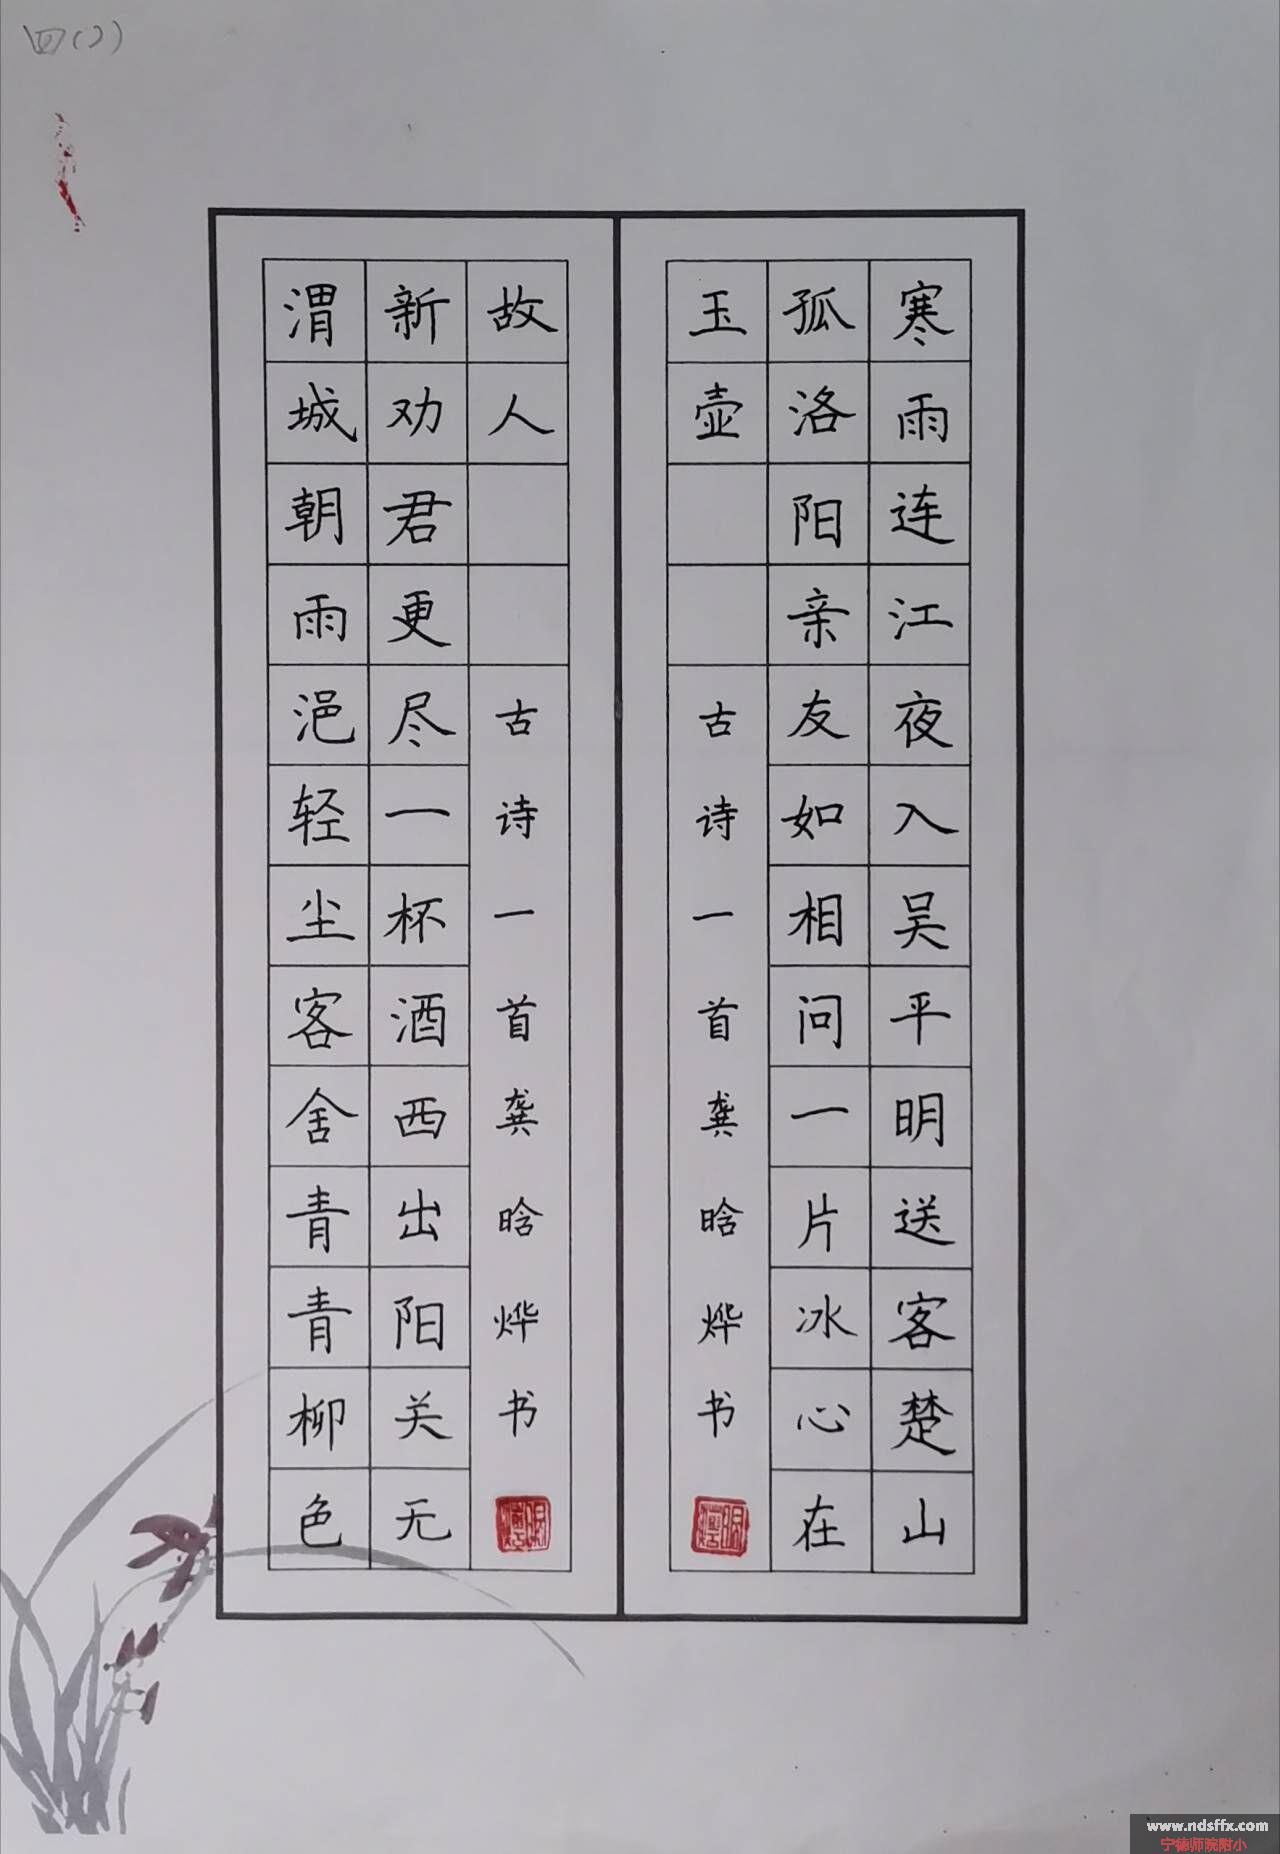 四(2)
寒雨连江夜入吴平明送客楚山
孤洛阳亲友如相问一片冰心在
玉壶
古诗一首龚晗烨书
渭城朝雨浥轻尘客舍青青柳色
新劝君更尽一杯酒西出阳关无
故人
古诗一首龚晗烨书
www.ndsffx.com
宁德师院附小